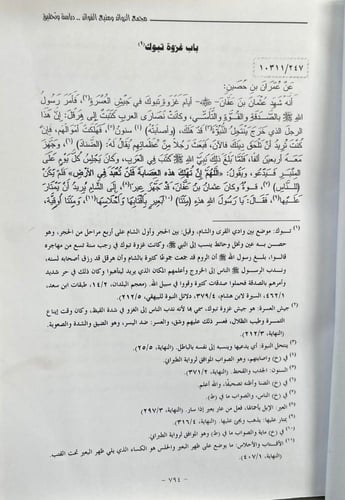 مجمع الزوائد ومنبع الفوائد .. دراسة وتحقيق
باب غزوة تبوك(١)
١٠٣١١/٢٤٧
عَنْ عِمْرَانَ بْنِ حُصَيْنٍ:
أَنَّهُ شَهِدَ عُثْمَانَ بْنَ عَفَّانَ -﵁- أَيَّامَ غَزْوَةِ تَبُوكَ فِي جَيْشِ الْعُسْرَةِ(٢)، فَأَمَرَ رَسُولُ
اللهِ ﷺ بِالصَّدَقَةِ وَالْقُوَّةِ وَالتَّأَسِّي، وَكَانَتْ نَصَارَى الْعَرَبِ كَتَبَتْ إِلَى هِرَقْلَ: إِنَّ هَذَا
الرجل الَّذِي خَرَجَ يَنْتَحِلُ النُّبُوَّةَ(٣) قَدْ هَلَكَ، (وأصابته)(٤) سنون(٥)، فَهَلَكَتْ أَمْوَالُهُمْ، فَإِنْ
كُنْتَ تُرِيدُ أَنْ تَلْحَقَ دِينَكَ فَالآنَ، فَبَعَثَ رَجُلاً مِنْ عُظَمَائِهِمْ يُقَالُ لَهُ: (الضناد)(٦)، وَجَهَّزَ
مَعَهُ أَرْبَعِينَ أَلْفًا، فَلَمَّا بَلَغَ ذَلِكَ نَبِيَّ اللهِ ﷺ كَتَبَ فِي الْعَرَبِ، وَكَانَ يَجْلِسُ كُلَّ يَوْمٍ عَلَى
الْمِنْبَرِ، فَيَدْعُو، وَيَقُولُ: «اللَّهُمَّ إِنْ تُهْلِكْ هَذِهِ الْعِصَابَةَ فَلَنْ تُعْبَدَ فِي الأَرْضِ» فَلَمْ يَكُنْ
(للناس)(٧) قُوَّةٌ وَكَانَ عُثْمَانُ بْنُ عَفَّانَ، قَدْ جَهَّزَ عِيرًا(٨)، إِلَى الشَّامِ يُرِيدُ أَنْ يَمْتَارَ
عَلَيْهَا(٩)، فَقَالَ: يَا رَسُولَ اللهِ هَذِهِ (مئتا)(١٠) بَعِيرٍ بِأَقْتَابِهَا وَأَحْلاسِهَا(١١)، وَمِئَتَا أُوقِيَّةٍ،
(١) تبوك: موضع بين وادي القرى والشام، وقيل: بين الحجر وأول الشام على أربع مراحل من الحجر، وهو
حصن به عين ونخل وحائط ينسب إلى النبي ﷺ وكانت غزوة تبوك في رجب سنة تسع من مهاجره
قالوا: بلغ رسول الله ﷺ أن الروم قد جمعت جموعًا كثيرة بالشام وأن هرقل قد رزق أصحابه لسنة،
وندب الرسول ﷺ الناس إلى الخروج وأعلمهم المكان الذي يريد ليتأهبوا وكان ذلك في حر شديد
وأمرهم بالصدقة فحملوا صدقات كثيرة وقووا في سبيل الله. (معجم البلدان، ١٤/٢، طبقات ابن سعد،
٤٦٢/١، السيرة لابن هشام، ٣٧٩/٤، دلائل النبوة للبيهقي، ٢١٢/٥).
(٢) جيش العسرة: هو جيش غزوة تبوك، سمي بها لأنه ندب الناس إلى الغزو في شدة القيظ، وكان وقت إيناع
الثمرة وطيب الظلال، فعسر ذلك عليهم وشق، والعسر: ضد اليسر، وهو الضيق والشدة والصعوبة.
(النهاية، ٢١٢/٣).
(٣) ينتحل النبوة: أي يدعيها وينسبه إلى نفسه بالباطل. (النهاية، ٢٥/٥).
(٤) في (خ) وأصابتهم، وهو الصواب الموافق لرواية الطبراني.
(٥) السنون: الجدب والقحط. (النهاية، ٣٧١/٢).
(٦) في (خ) الضنا وأظنه تصحيفًا، والله أعلم.
(٧) في (خ) الناس، والصواب ما في (ط).
(٨) العير: الإبل بأحمالها، فعل من عار يعير إذا سار. (النهاية، ٢٩٧/٣).
(٩) يمتار عليها: يذهب ويجئ عليها. (النهاية، ٣١٦/٤).
(١٠) في (خ) مائة والصواب ما في (ط) وهو الموافق لرواية الطبراني.
(١١) الأقتاب والأحلاس: ما يوضع على ظهر البعير والحلس هو الكساء الذي يلي ظهر البعير تحت القتب.
(النهاية، ٤٠٧/١).
٧٩٤